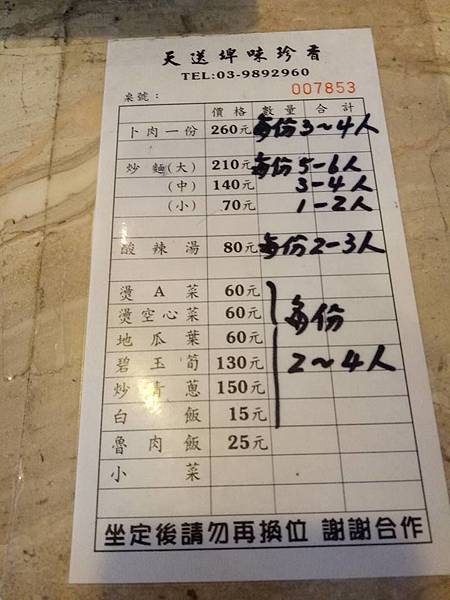 天送埤味珍香
TEL:03-9892960
007853
桌號：
價格 數量 合計
卜肉一份 260元 每份3~4人
炒麵(大) 210元 每份5-6人
(中) 140元 3-4人
(小) 70元 1-2人
酸辣湯 80元 每份2-3人
燙A菜 60元
燙空心菜 60元 每份
地瓜葉 60元
碧玉筍 130元 2~4人
炒青蔥 150元
白飯 15元
魯肉飯 25元
小菜
坐定後請勿再換位 謝謝合作